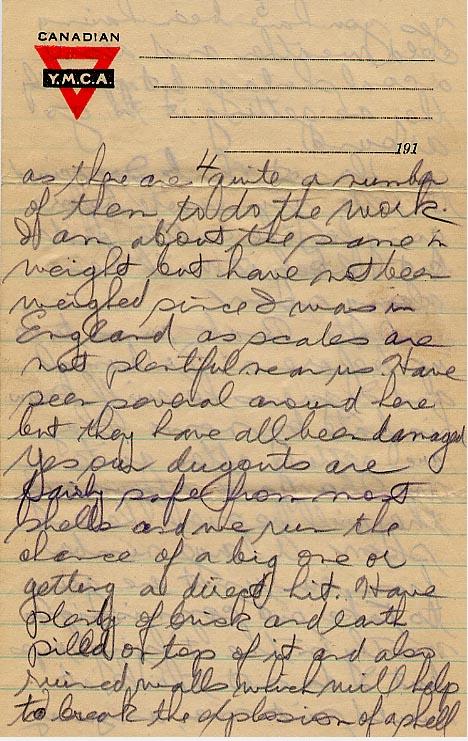 CANADIAN
Y.M.C.A.
191
4
as there are quite a number
of them to do the work.
I am about the same in
weight but have not been
weighed since I was in
England as scales are
not plentiful near us. Have
seen several around here
but they have all been damaged
Yes our dugouts are
fairly safe from most
shells and we run the
chance of a big one or
getting a direct hit. Have
plenty of brick and earth
pilled on top of it and also
ruined walls which will help
to break the explosion of a shell